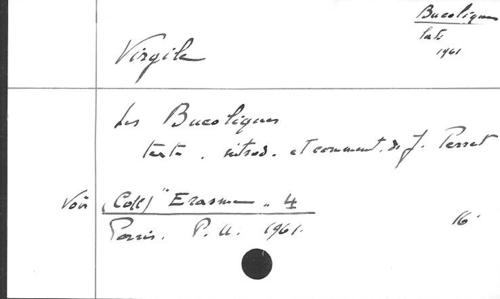 Bucoliques
texte
1961
Virgile
Les Bucoliques
texte. introd. et comment. de J. Perret
Voir (Coll) "Erasme" 4
Paris. P.U. 1961.
16°